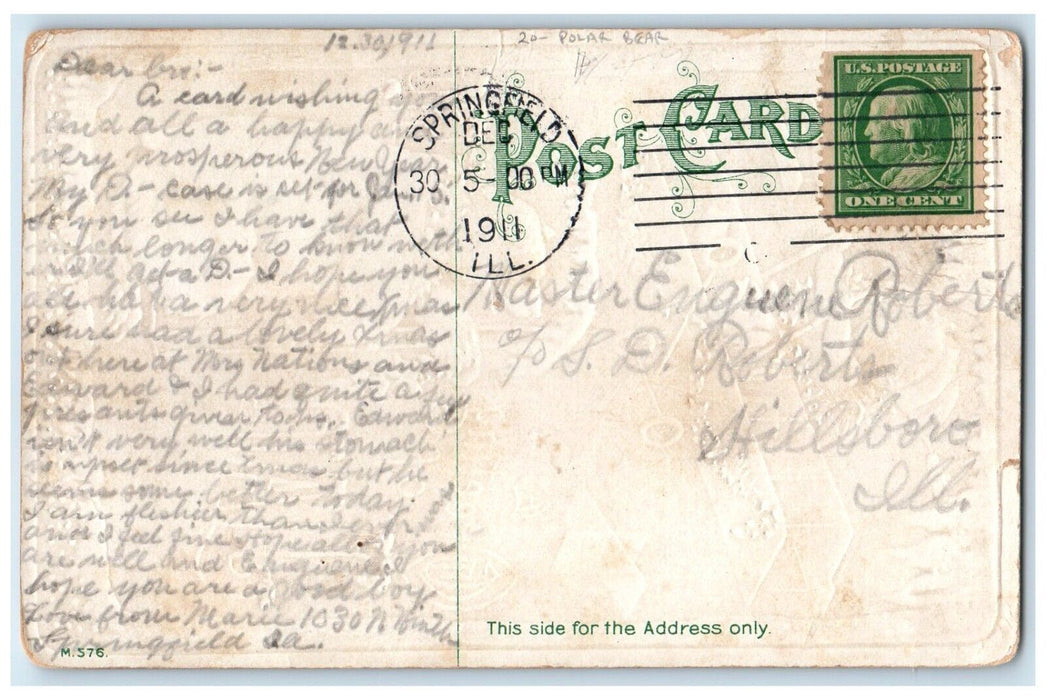 12.30/1911
20- POLAR BEAR
Dear bro:-
A card wishing you
and all a happy and
very prosperous New Year
My D.- case is set for Jan. 5.
So you see I have that
much longer to know
I'll get a D.- I hope you
all had a very nice Xmas
I sure had a lovely Xmas
out here at Mrs Nations and
Edward & I had quite a few
presants given to us. Edward
isn't very well his stomach
is upset since Xmas but he
seems some better today
I am fleshier than ever
and I feel fine Hope all of you
are well and Enguene I
hope you are a good boy
Love from Marie 1030 N Ninth
Springfield Ill.
M.576.
POST CARD
SPRINGFIELD
DEC
30 5 00 PM
1911
ILL.
U.S. POSTAGE
ONE CENT
Master Enguene Roberts
c/o S. D. Roberts
Hillsboro
Ill.
This side for the Address only.